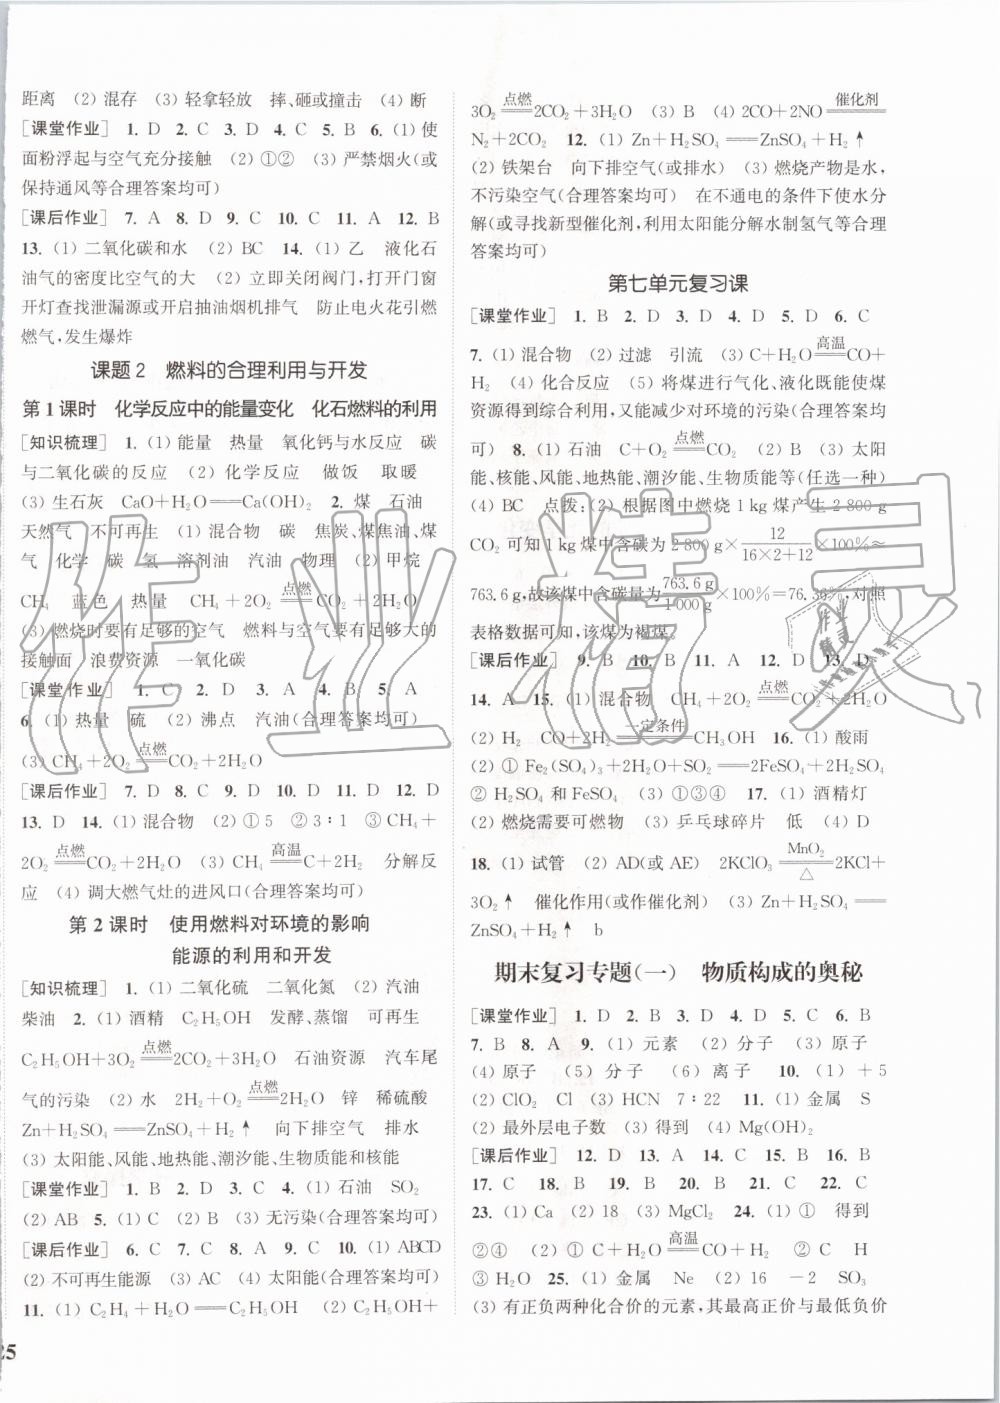 距离　(2) 混存　(3) 轻拿轻放　摔、砸或撞击　(4) 断
[课堂作业]　1. D　2. C　3. D　4. C　5. B　6. (1) 使
面粉浮起与空气充分接触　(2) ①②　(3) 严禁烟火(或
保持通风等合理答案均可)
[课后作业]　7. A　8. D　9. C　10. C　11. A　12. B
13. (1) 二氧化碳和水　(2) BC　14. (1) 乙　液化石
油气的密度比空气的大　(2) 立即关闭阀门,打开门窗
开灯查找泄漏源或开启抽油烟机排气　防止电火花引燃
燃气,发生爆炸
课题2　燃料的合理利用与开发
第1课时　化学反应中的能量变化　化石燃料的利用
[知识梳理]　1. (1) 能量　热量　氧化钙与水反应　碳
与二氧化碳的反应　(2) 化学反应　做饭　取暖
(3) 生石灰　CaO+H₂O══Ca(OH)₂　2. 煤　石油
天然气　不可再生　(1) 混合物　碳　焦炭、煤焦油、煤
气　化学　碳　氢　溶剂油　汽油　物理　(2) 甲烷
CH₄　蓝色　热量　CH₄+2O₂ 点燃══ CO₂+2H₂O
(3) 燃烧时要有足够的空气　燃料与空气要有足够大的
接触面　浪费资源　一氧化碳
[课堂作业]　1. C　2. D　3. C　4. B　5. A
6. (1) 热量　硫　(2) 沸点　汽油(合理答案均可)
(3) CH₄+2O₂ 点燃══ CO₂+2H₂O
[课后作业]　7. D　8. C　9. B　10. D　11. D　12. D
13. D　14. (1) 混合物　(2) ① 5　② 3∶1　③ CH₄+
2O₂ 点燃══ CO₂+2H₂O　(3) CH₄ 高温══ C+2H₂　分解反
应　(4) 调大燃气灶的进风口(合理答案均可)
第2课时　使用燃料对环境的影响
能源的利用和开发
[知识梳理]　1. (1) 二氧化硫　二氧化氮　(2) 汽油
柴油　2. (1) 酒精　C₂H₅OH　发酵、蒸馏　可再生
C₂H₅OH+3O₂ 点燃══ 2CO₂+3H₂O　石油资源　汽车尾
气的污染　(2) 水　2H₂+O₂ 点燃══ 2H₂O　锌　稀硫酸
Zn+H₂SO₄══ZnSO₄+H₂↑　向下排空气　排水
(3) 太阳能、风能、地热能、潮汐能、生物质能和核能
[课堂作业]　1. B　2. D　3. C　4. (1) 石油　SO₂
(2) AB　5. (1) C　(2) B　(3) 无污染(合理答案均可)
[课后作业]　6. C　7. C　8. A　9. C　10. (1) ABCD
(2) 不可再生能源　(3) AC　(4) 太阳能(合理答案均可)
11. (1) C₂H₄+H₂O══C₂H₅OH　(2) C₂H₅OH+
25
3O₂ 点燃══ 2CO₂+3H₂O　(3) B　(4) 2CO+2NO 催化剂══
N₂+2CO₂　12. (1) Zn+H₂SO₄══ZnSO₄+H₂↑
(2) 铁架台　向下排空气(或排水)　(3) 燃烧产物是水,
不污染空气(合理答案均可)　在不通电的条件下使水分
解(或寻找新型催化剂,利用太阳能分解水制氢气等合理
答案均可)
第七单元复习课
[课堂作业]　1. B　2. D　3. D　4. D　5. D　6. C
7. (1) 混合物　(2) 过滤　引流　(3) C+H₂O 高温══ CO+
H₂　(4) 化合反应　(5) 将煤进行气化、液化既能使煤
资源得到综合利用,又能减少对环境的污染(合理答案均
可)　8. (1) 石油　C+O₂ 点燃══ CO₂　(2) B　(3) 太阳
能、核能、风能、地热能、潮汐能、生物质能等(任选一种)
(4) BC　点拨:(2) 根据图中燃烧 1 kg 煤产生 2 800 g
CO₂ 可知 1 kg 煤中含碳为 2 800 g×12/(16×2+12)×100%≈
763.6 g,故该煤中含碳量为 763.6 g/1 000 g×100%=76.36%,对照
表格数据可知,该煤为褐煤。
[课后作业]　9. B　10. B　11. A　12. D　13. D
14. A　15. (1) 混合物　CH₄+2O₂ 点燃══ CO₂+2H₂O
(2) H₂　CO+2H₂ 一定条件══ CH₃OH　16. (1) 酸雨
(2) ① Fe₂(SO₄)₃+2H₂O+SO₂══2FeSO₄+2H₂SO₄
② H₂SO₄ 和 FeSO₄　(3) ①③④　17. (1) 酒精灯
(2) 燃烧需要可燃物　(3) 乒乓球碎片　低　(4) D
18. (1) 试管　(2) AD(或 AE)　2KClO₃ MnO₂══△ 2KCl+
3O₂↑　催化作用(或作催化剂)　(3) Zn+H₂SO₄══
ZnSO₄+H₂↑　b
期末复习专题(一)　物质构成的奥秘
[课堂作业]　1. D　2. B　3. D　4. D　5. C　6. B
7. B　8. A　9. (1) 元素　(2) 分子　(3) 原子
(4) 原子　(5) 分子　(6) 离子　10. (1) +5
(2) ClO₂　Cl　(3) HCN　7∶22　11. (1) 金属　S
(2) 最外层电子数　(3) 得到　(4) Mg(OH)₂
[课后作业]　12. D　13. A　14. C　15. B　16. B
17. C　18. B　19. B　20. B　21. C　22. C
23. (1) Ca　(2) 18　(3) MgCl₂　24. (1) ①　得到
②④　(2) ① C+H₂O 高温══ CO+H₂　② C　H
③ H₂O　25. (1) 金属　Ne　(2) 16　-2　SO₃
(3) 有正负两种化合价的元素,其最高正价与最低负价
作业精灵